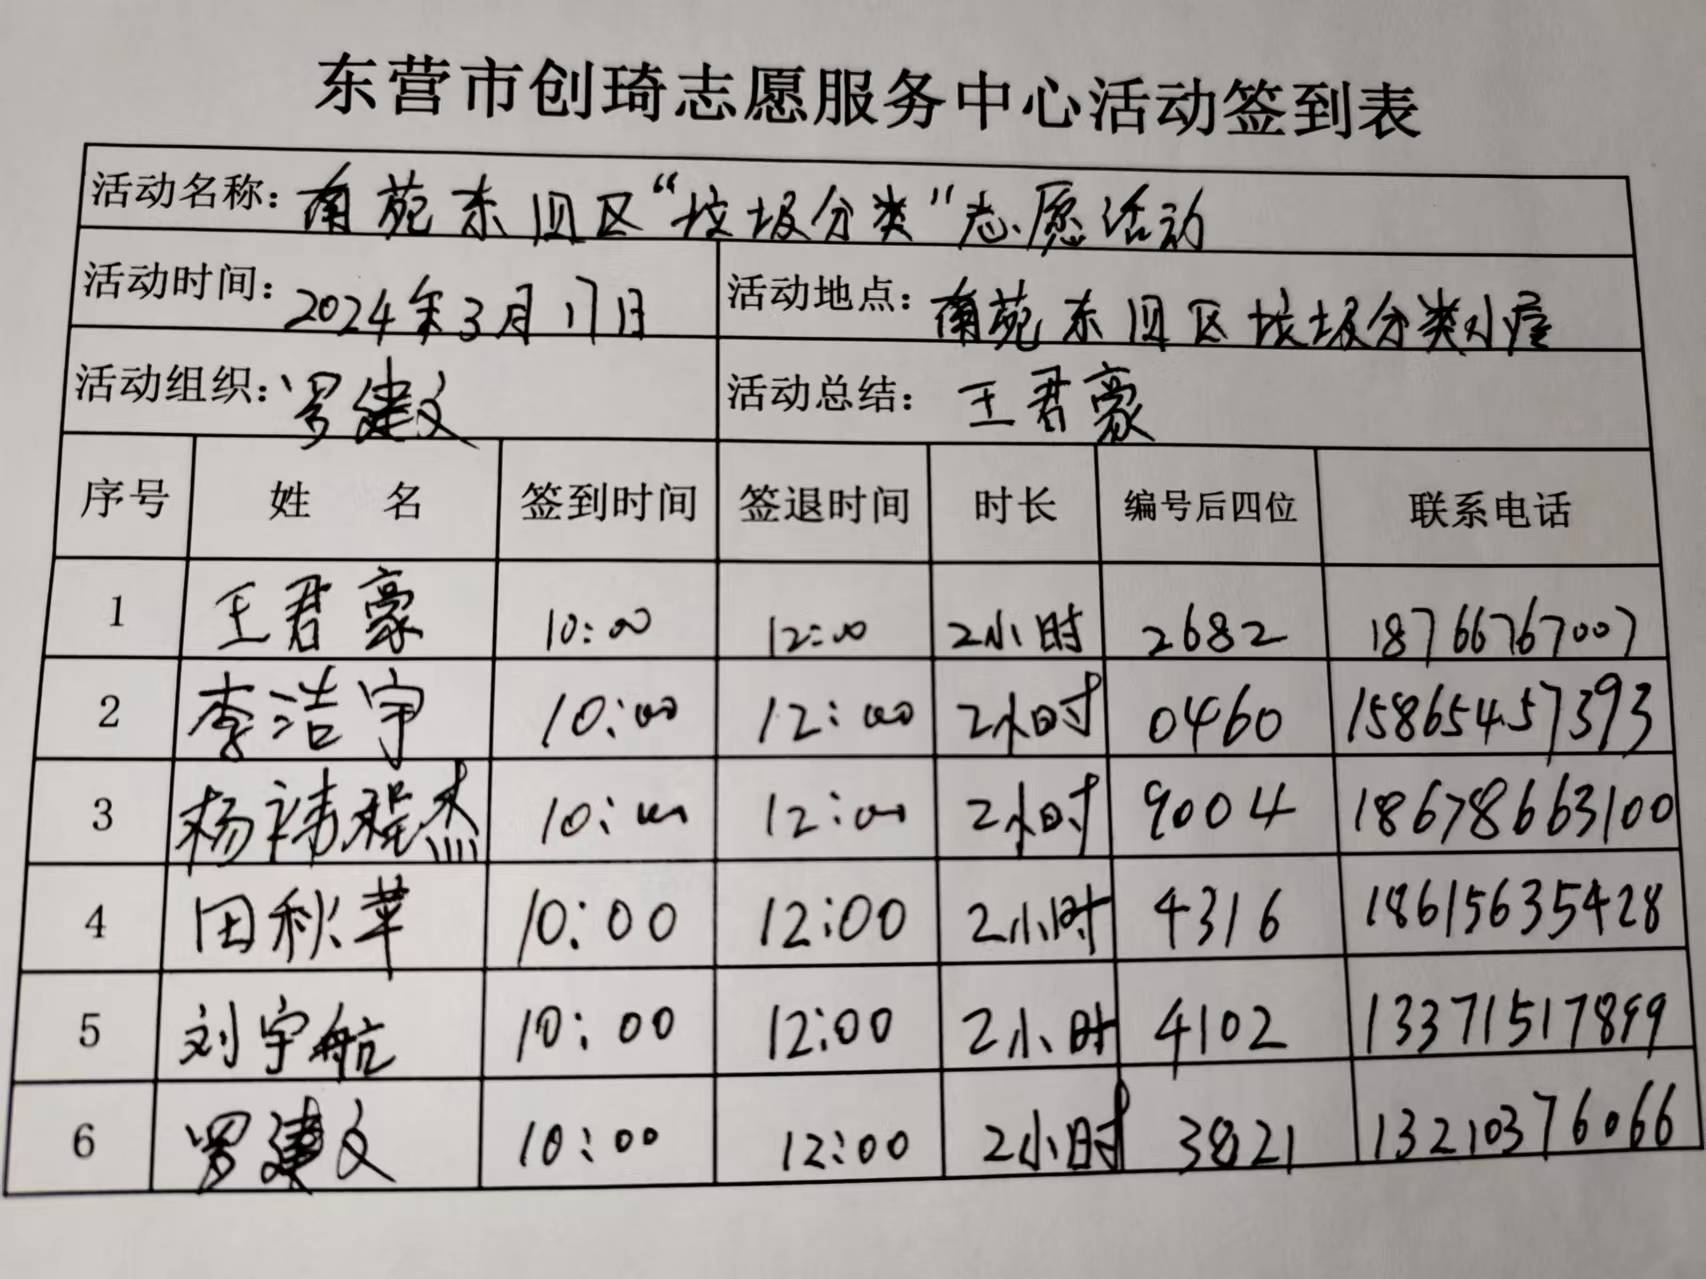 东营市创琦志愿服务中心活动签到表
活动名称：南苑东国区“垃圾分类”志愿活动
活动时间：2024年3月17日 活动地点：南苑东国区垃圾分类小屋
活动组织：罗建文 活动总结：王君豪
序号 姓 名 签到时间 签退时间 时长 编号后四位 联系电话
1 王君豪 10:00 12:00 2小时 2682 18766767007
2 李浩宇 10:00 12:00 2小时 0460 15865457393
3 杨祎程杰 10:00 12:00 2小时 9004 18678663100
4 田秋苹 10:00 12:00 2小时 4316 18615635428
5 刘宇航 10:00 12:00 2小时 4102 13371517899
6 罗建文 10:00 12:00 2小时 3821 13210376066